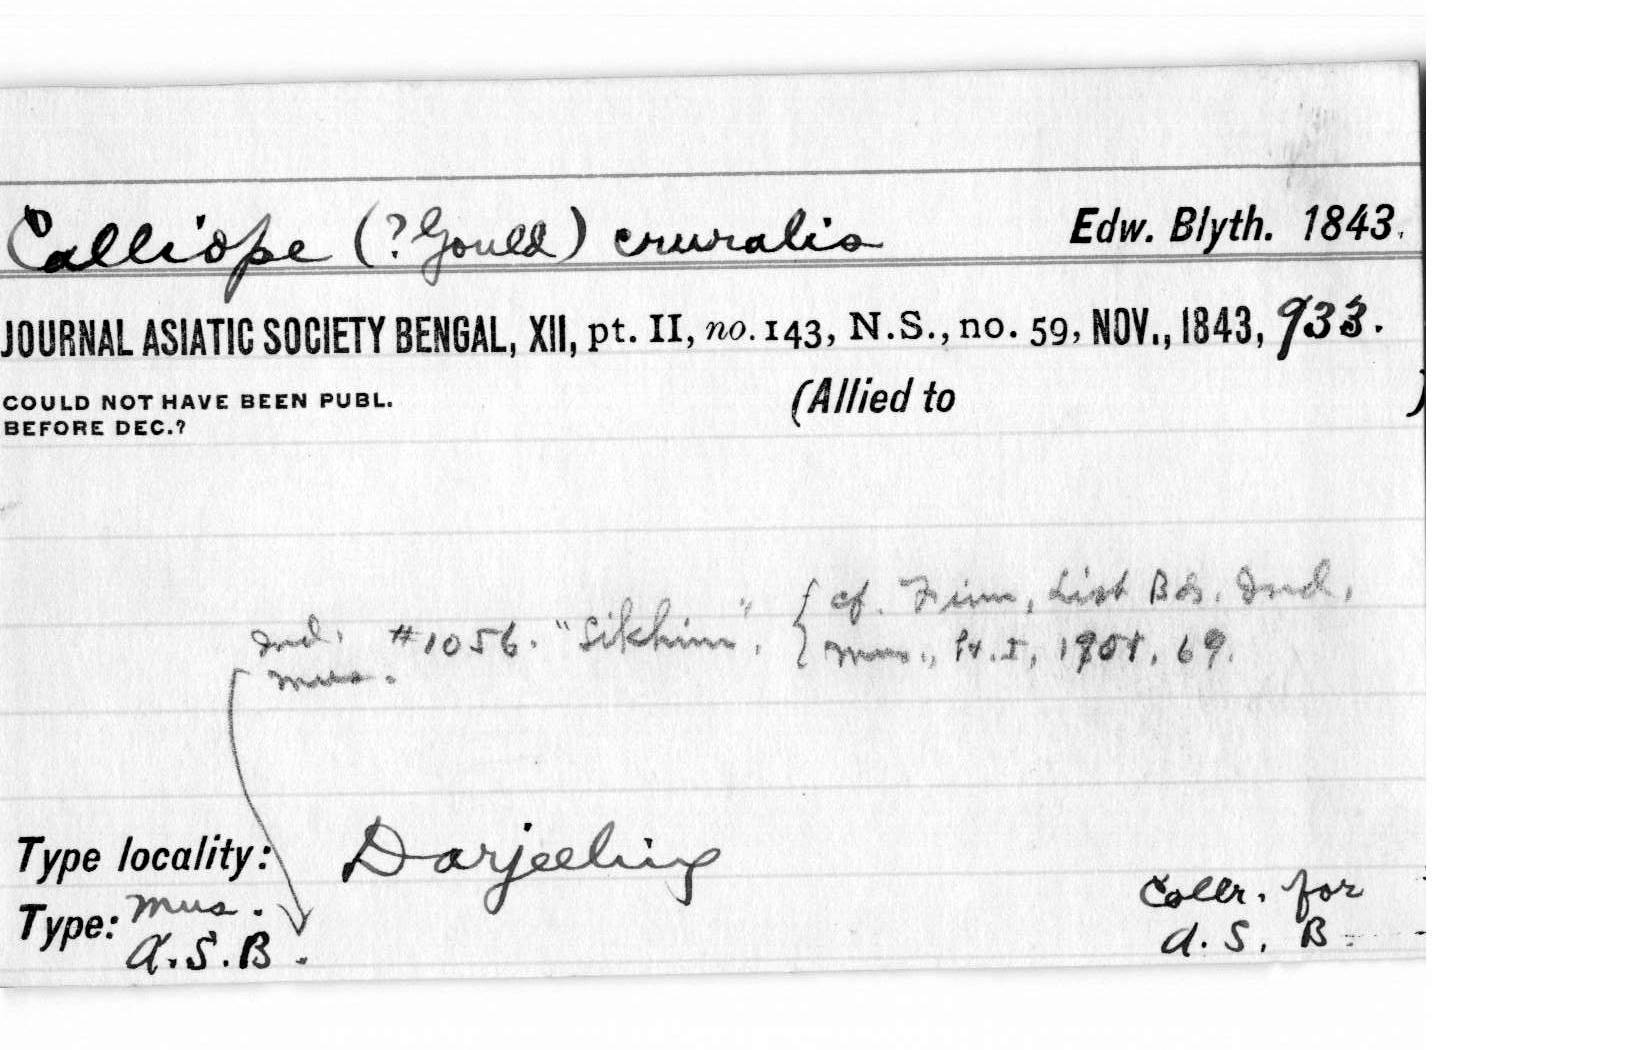 Calliope (? Gould) cruralis Edw. Blyth. 1843.
JOURNAL ASIATIC SOCIETY BENGAL, XII, pt. II, no. 143, N.S., no. 59, NOV., 1843, 933.
COULD NOT HAVE BEEN PUBL.
BEFORE DEC.?
(Allied to )
Ind. Mus. #1056. "Sikhim". { cf. Finn, List Bds. Ind.
Mus., Pt. I, 1901, 69.
Type locality: Darjeeling
Type: Mus. A.S.B.
Collr. for
A. S. B.